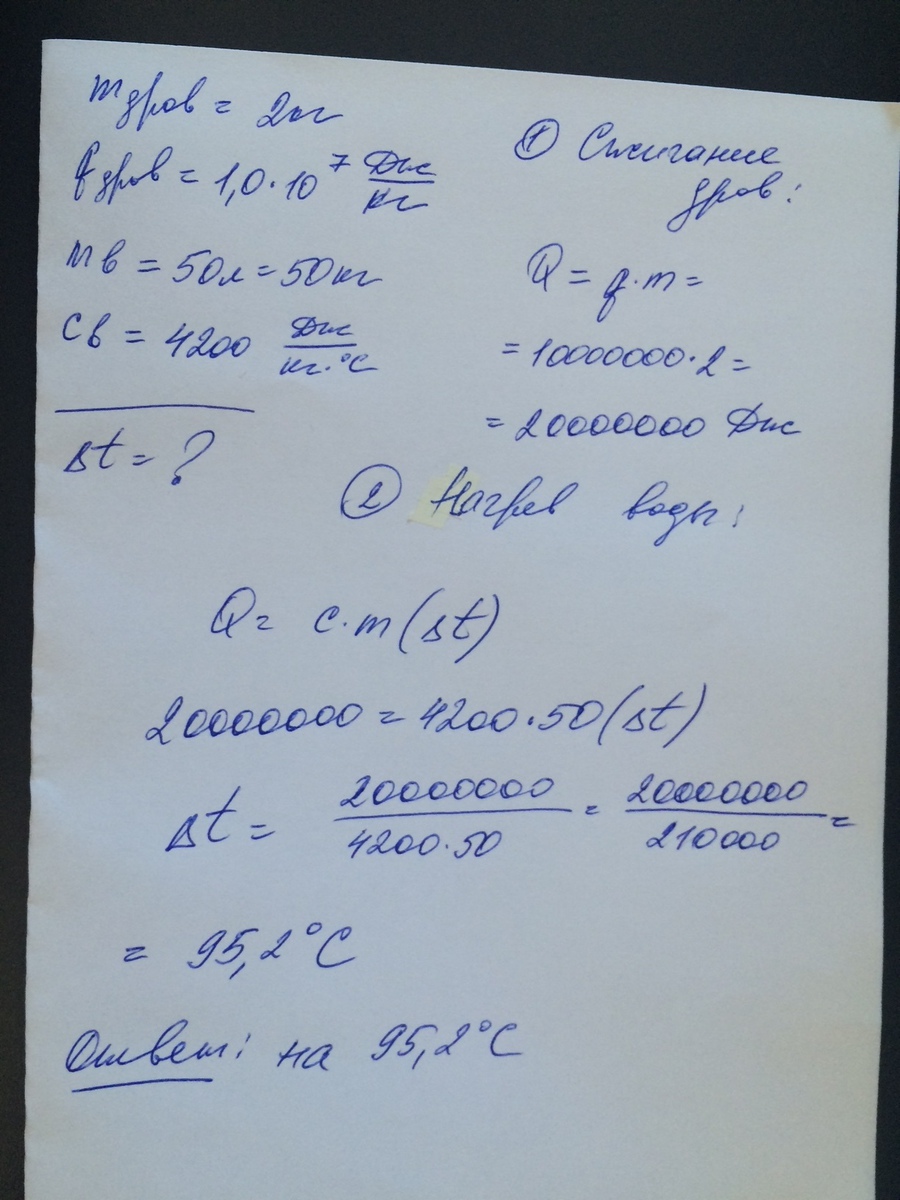 m дров = 2кг
q дров = 1,0·10⁷ Дж/кг
m в = 50л = 50кг
c в = 4200 Дж/кг·°C
Δt = ?
① Сжигание
дров:
Q = q·m =
= 10000000·2 =
= 20000000 Дж
② Нагрев воды:
Q = c·m(Δt)
20000000 = 4200·50(Δt)
Δt = 20000000/4200·50 = 20000000/210000 =
= 95,2°C
Ответ: на 95,2°C